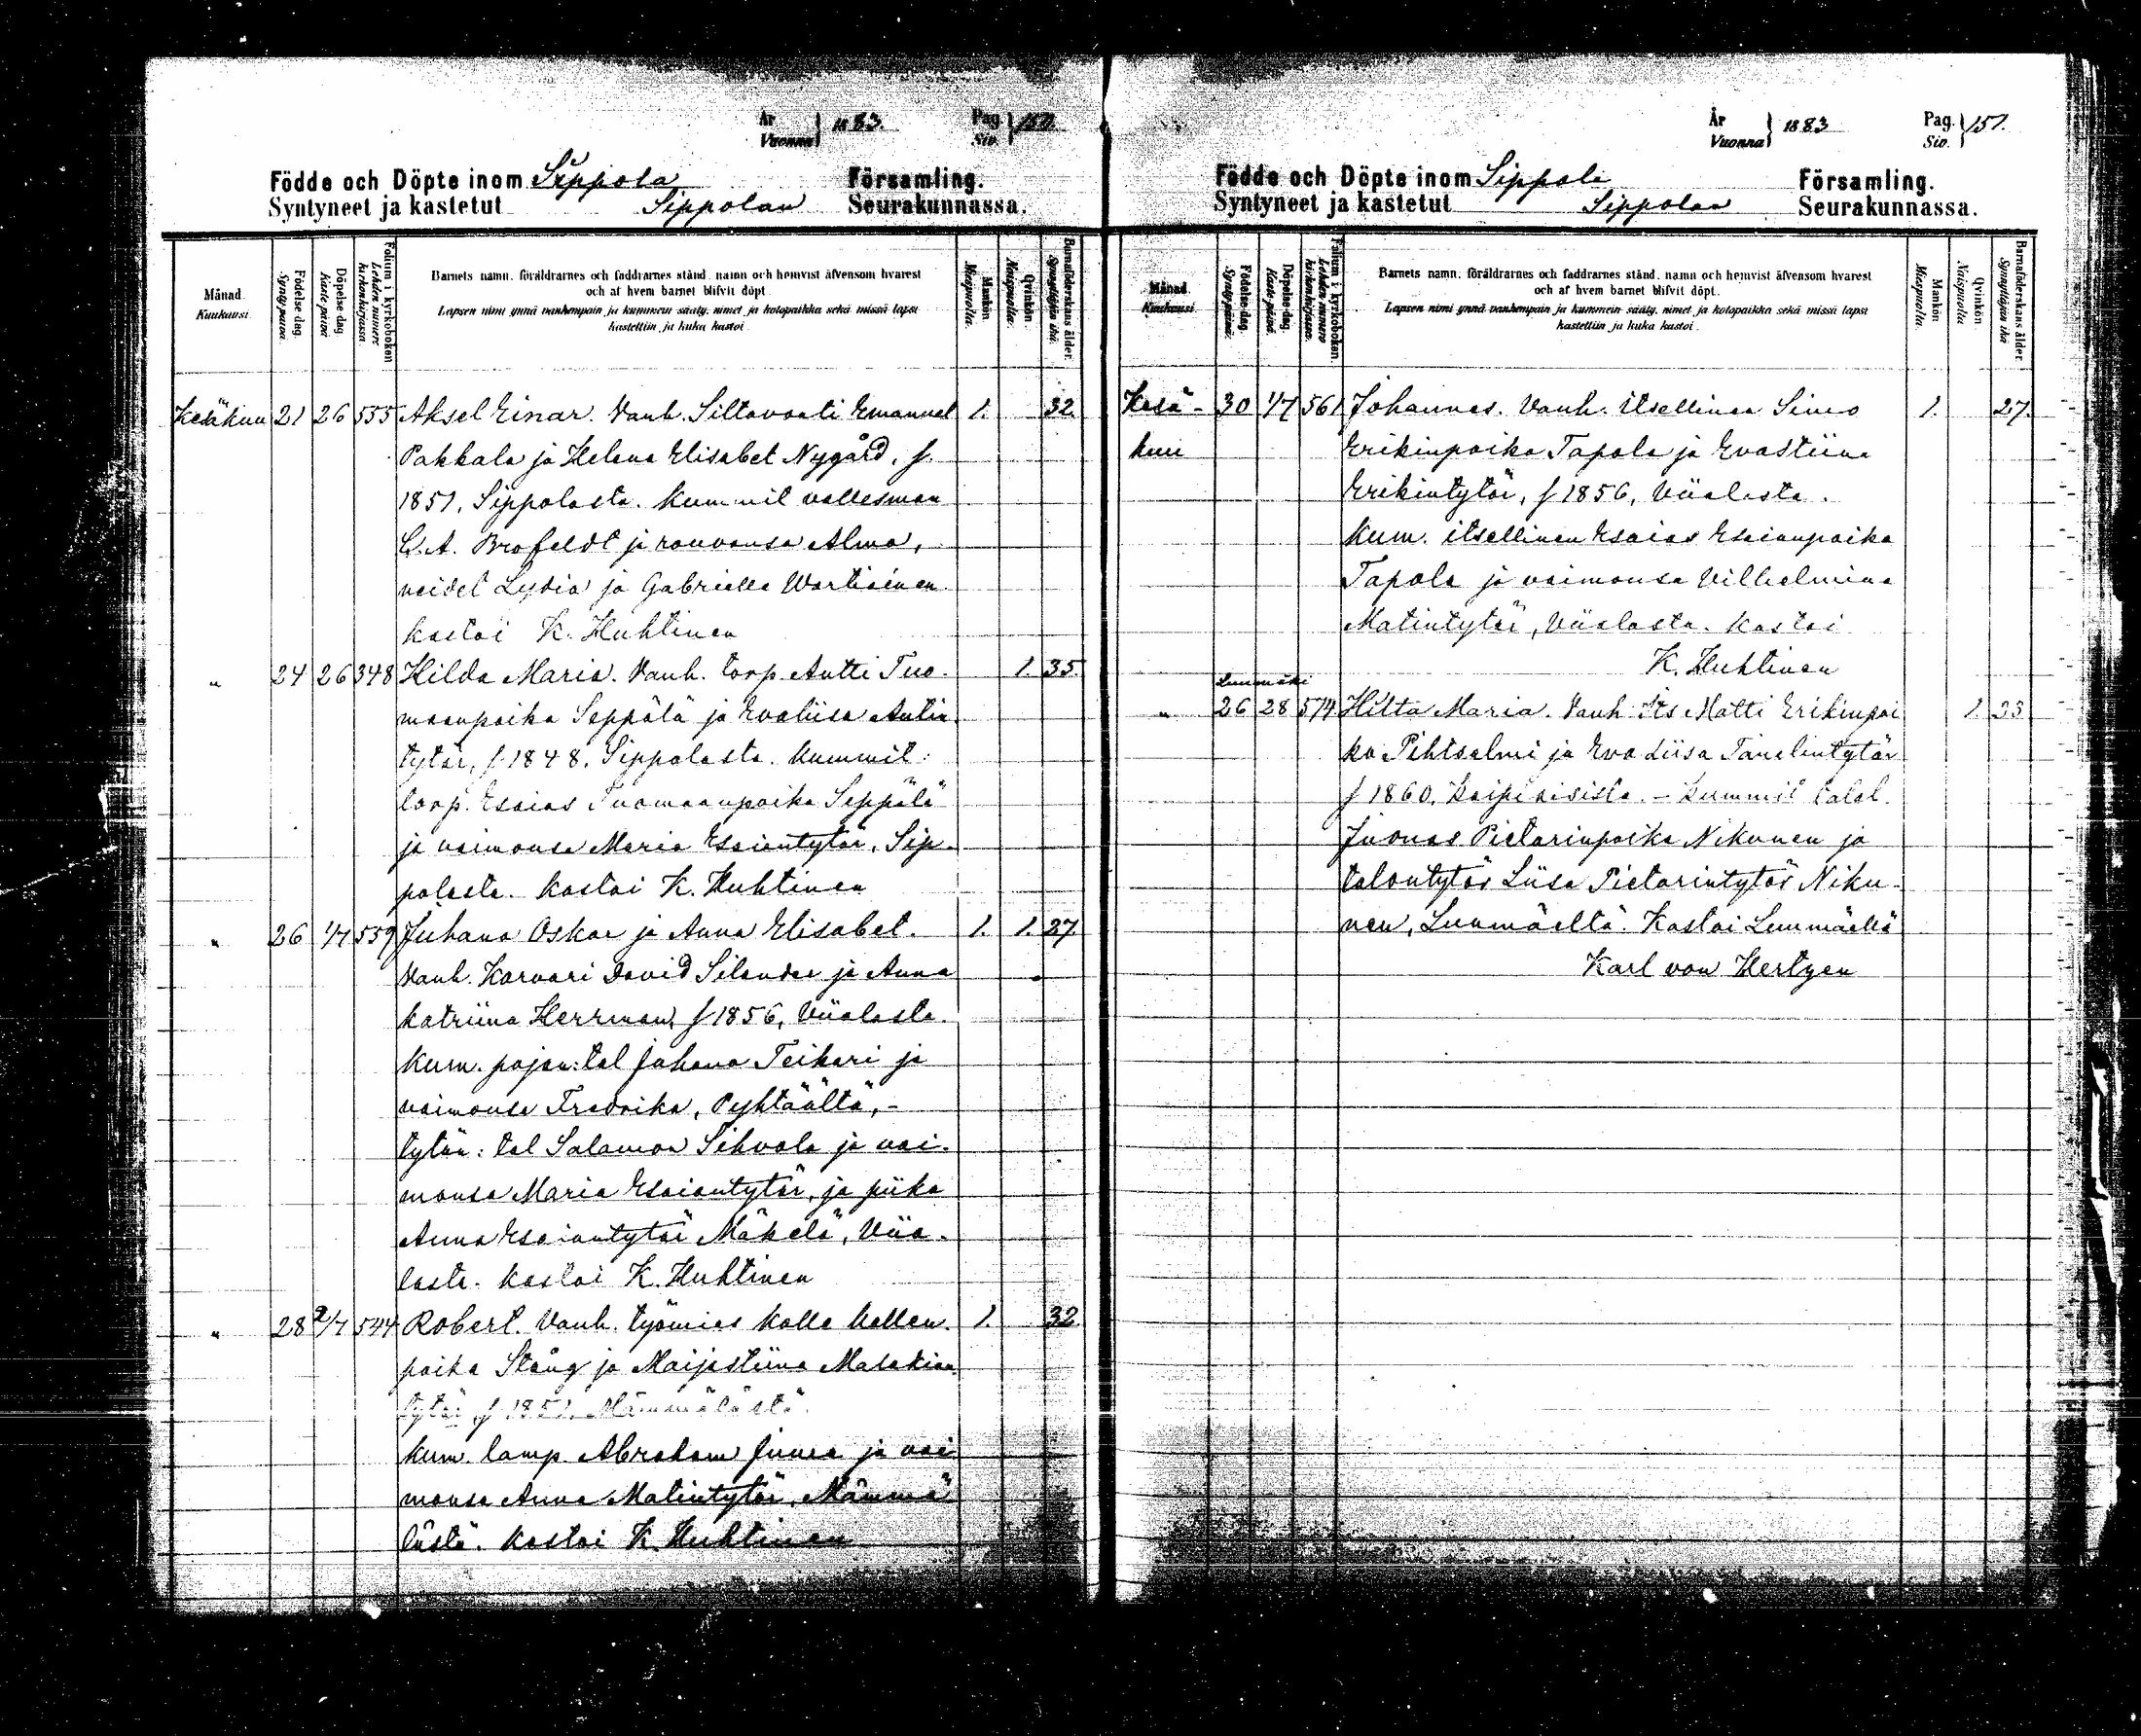 År Vuonna } 1883. Pag. Siv. } 150.
Födde och Döpte inom Sippola Församling.
Syntyneet ja kastetut Sippolan Seurakunnassa.
Månad. Kuukausi. Födelse dag. Synty-päivä. Döpelse dag. Kaste-päivä. Folium i kyrkoboken Lehden numero kirkonkirjassa. Barnets namn, föräldrarnes och faddrarnes stånd, namn och hemvist äfvensom hvarest Mankön Miespuolta. Qvinkön Naispuolta. Barnaföderskans ålder. Synnyttäjän ikä.
och af hvem barnet blifvit döpt.
Lapsen nimi ynnä vanhempain ja kummein sääty, nimet ja kotopaikka sekä missä lapsi
kastettiin ja kuka kastoi.
Kesäkuu 21 26 555 Aksel Einar. Vanh. Siltavouti Emanuel 1. 32.
Pakkala ja Helena Elisabet Nygård, f.
1851, Sippolasta. Kummit vallesman
C. A. Brofeldt ja rouvansa Alma,
neidet Lydia ja Gabriella Wartiainen.
kastoi K. Huhtinen
" 24 26 348 Hilda Maria. Vanh. torp. Antti Tuo- 1. 35.
maanpoika Seppälä ja Evaliisa Antin
tytär, f. 1848. Sippolasta. Kummit:
torp. Esaias Tuomaanpoika Seppälä
ja vaimonsa Maria Esaiantytär, Sip-
polasta. Kastoi K. Huhtinen
" 26 1/7 559 Juhana Oskar ja Anna Elisabet. 1. 1. 27.
Vanh. Karvari David Silander ja Anna
Katriina Herrman, f 1856, Viialasta.
Kum. pojan: tal Juhana Teikari ja
vaimonsa Fredrika, Pyhtäältä,-
tytön: tal Salamon Sihvola ja vai-
monsa Maria Esaiantytär, ja piika
Anna Esaiantytär Mäkelä, Viia-
lasta. Kastoi K. Huhtinen
" 28 2/7 544 Robert. Vanh. työmies Kalle Kallen- 1. 32
poika Stång ja Maijastiina Malakian
tytär, f 1851. Mämmälästä.
Kum. lamp. Abraham Juura ja vai
monsa Anna Matintytär, Mämmä
lästä. Kastoi K. Huhtinen
År Vuonna } 1883 Pag. Siv. } 151.
Födde och Döpte inom Sippola Församling.
Syntyneet ja kastetut Sippolan Seurakunnassa.
Månad. Kuukausi. Födelse-dag. Synty-päivä. Döpelse-dag. Kaste-päivä. Folium i kyrkoboken. Lehden numero kirkonkirjassa. Barnets namn, föräldrarnes och faddrarnes stånd, namn och hemvist äfvensom hvarest Mankön Miespuolta. Qvinkön Naispuolta Barnaföderskans ålder. Synnyttäjän ikä
och af hvem barnet blifvit döpt.
Lapsen nimi ynnä vanhempain ja kummein sääty, nimet ja kotopaikka sekä missä lapsi
kastettiin ja kuka kastoi.
Kesä- 30 1/7 561 Johannes. Vanh. itsellinen Simo 1. 27.
kuu Erikinpoika Tapola ja Evastiina
Erikintytär, f 1856, Viialasta.
Kum. itsellinen Esaias Esaianpoika
Tapola ja vaimonsa Vilhelmina
Matintytär, Viialasta. Kastoi
K. Huhtinen
Luumäki
" 26 28 574 Hilta Maria. Vanh. Its Matti Erikinpoi 1. 23
ka Pihtsalmi ja Eva Liisa Tanelintytär
f 1860. Kaipiaisista. - Kummit talol.
Juonas Pietarinpoika Nikunen ja
talontytös Liisa Pietarintytös Niku-
nen, Luumäeltä. Kastoi Luumäellä
Karl von Hertzen